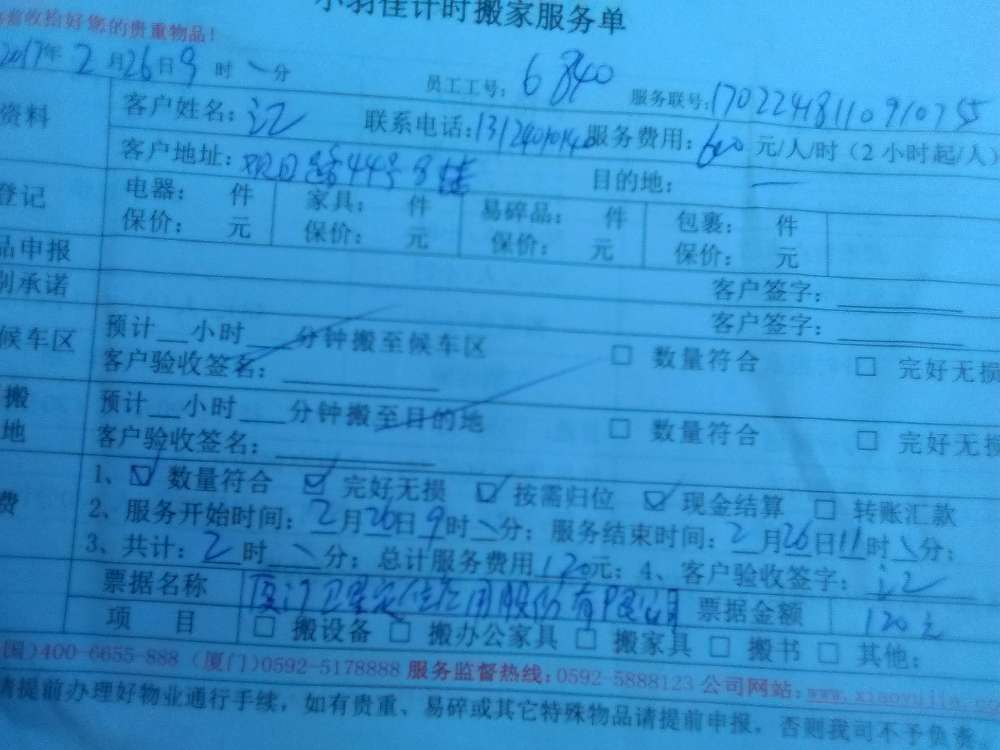 小羽佳计时搬家服务单
收拾好您的贵重物品!
2017年2月26日9时 分 员工工号: 6840 服务联号:
资料 客户姓名: 江 联系电话: 服务费用: 元/人/时(2小时起/人)
客户地址: 44号 目的地: 一
登记 电器: 件 家具: 件 易碎品: 件 包裹: 件
保价: 元 保价: 元 保价: 元 保价: 元
品申报 客户签字:
别承诺 客户签字:
候车区 预计__小时__分钟搬至候车区 □ 数量符合 □ 完好无损
客户验收签名:
搬 预计__小时__分钟搬至目的地 □ 数量符合 □ 完好无损
地 客户验收签名:
1、☑ 数量符合 ☑ 完好无损 ☑ 按需归位 ☑ 现金结算 □ 转账汇款
费 2、服务开始时间: 2月26日9时 分; 服务结束时间: 2月26日11时 分;
3、共计: 2时 分; 总计服务费用120元; 4、客户验收签字: 江
票据名称 厦门卫星定位应用股份有限公司 票据金额 120元
项 目 □ 搬设备 □ 搬办公家具 □ 搬家具 □ 搬书 □ 其他:
国)400-6655-888 (厦门)0592-5178888 服务监督热线:0592-5888123 公司网站:www.xiaoyujia.co
请提前办理好物业通行手续,如有贵重、易碎或其它特殊物品请提前申报,否则我司不予负责